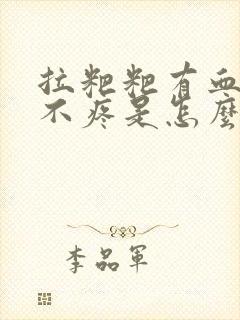 拉粑粑有血
不疼是怎麼
李品軍